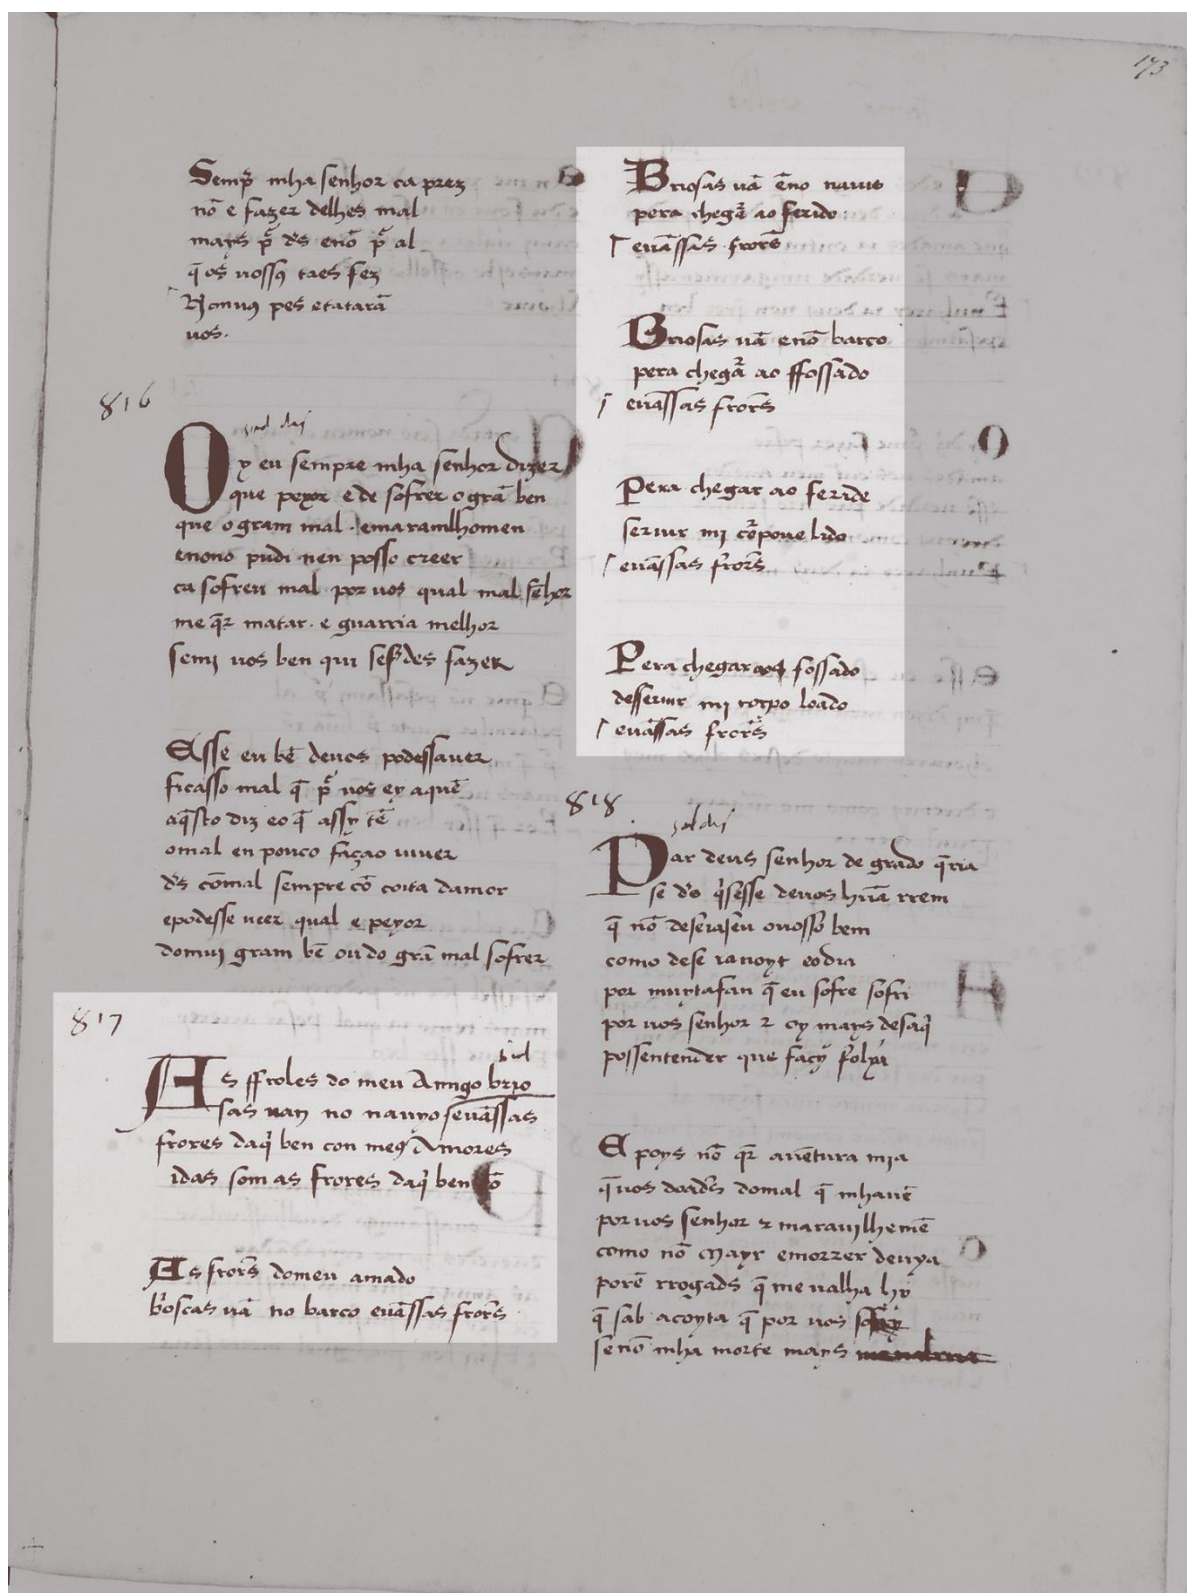 173
Semp̃ mha senhor ca prez
nõ e fazer delhes mal
mays p̃ ds̃ enõ p̃ al
q̃ os uossꝯ taes fez
Ramus pes etatarã
uos.
816
Oy eu sempre mha senhor dizer
que peyor e de sofrer o grã ben
que o gram mal . emaramlhomen
enono pudi nen posso creer
ca sofreu mal por uos qual mal sẽhor
me q̃r matar . e guarria melhor
semi uos ben qui sesdes fazer
Esse eu bẽ deuos podessauer
ficasso mal q̃ p̃ uos ey aquẽ
aq̃sto diz eo q̃ assy tẽ
omal en pouco façao uiuer
ds̃ cõmal sempre cõ coita damor
epodesse ueer qual e peyor
domuj gram bẽ ou do grã mal sofrer
817
As ffroles do meu Amigo brio
sas uan no nauyo seuãssas
frores daq̃ ben con meꝯ Amores
idas som as frores daq̃ ben cõ
As frorẽs domeu amado
bⁱoscas uã no barco euãssas frorẽs
Briosas uã ẽno nauio
pera chegar̃ ao ferido
euãssas frorẽs
Briosas uã enõ barco
pera chegar̃ ao ffossado
euãssas frorẽs
Pera chegar ao feride
seruir mj cõrpoue lido
euãssas frorẽs
Pera chegar aos fossado
desseruir mj corpo loado
euãssas frorẽs
818
Par deus senhor de grado q̃ria
se ds̃ q̃sesse deuos hũa rrem
q̃ nõ deseiaseu ouosso bem
como dese ianoyt eodia
por muytafan q̃ eu sofre sofri
por uos senhor ⁊ oy mays desaq̃
possentender que faç̃y
E poys nõ q̃r auẽtura mia
q̃uos doads̃ domal q̃ mhauẽ
por uos senhor ⁊ marauilhemẽ
como nõ
porẽ rrogads̃ q̃ me ualha hy
q̃ sab acoyta q̃ por uos
senõ mha morte mays